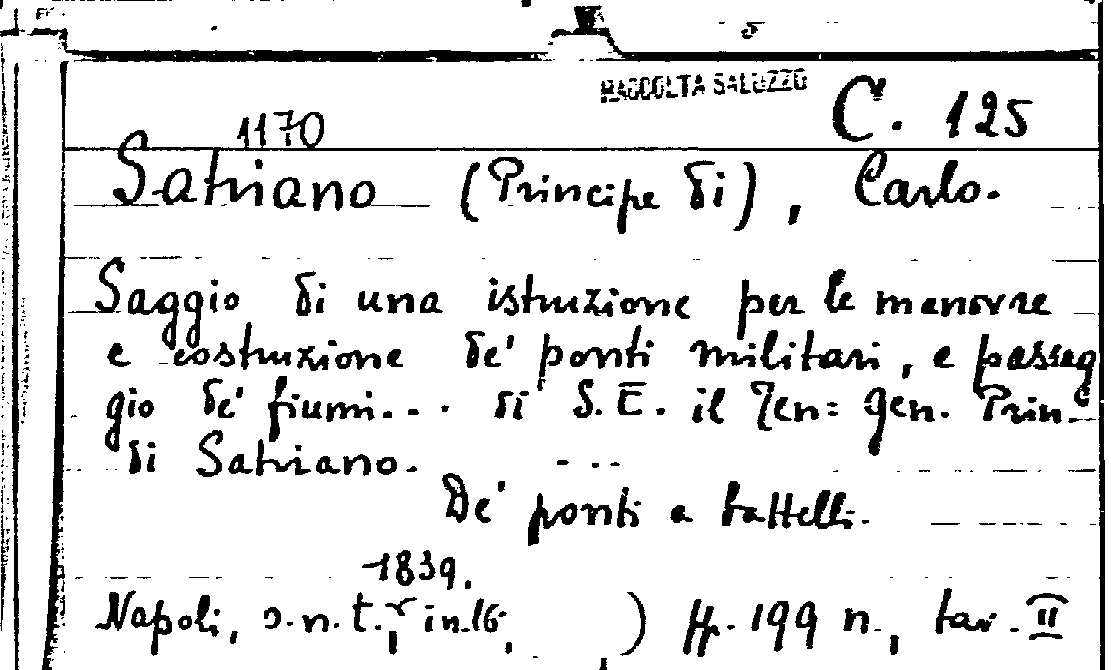 RACCOLTA SALUZZO
C. 125
1170
Satriano (Principe di), Carlo.
Saggio di una istruzione per le manovre
e costruzione de' ponti militari, e passag
gio de' fiumi... di S.E. il Ten= gen. Prin.
di Satriano. ...
De' ponti a battelli.
1839.
Napoli, s.n.t., in.16. ) ff. 199 n., tav. II